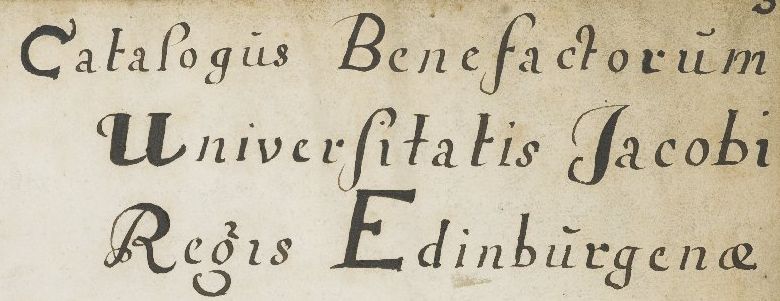 Catalogus Benefactorum
Universitatis Jacobi
Regis Edinburgenæ